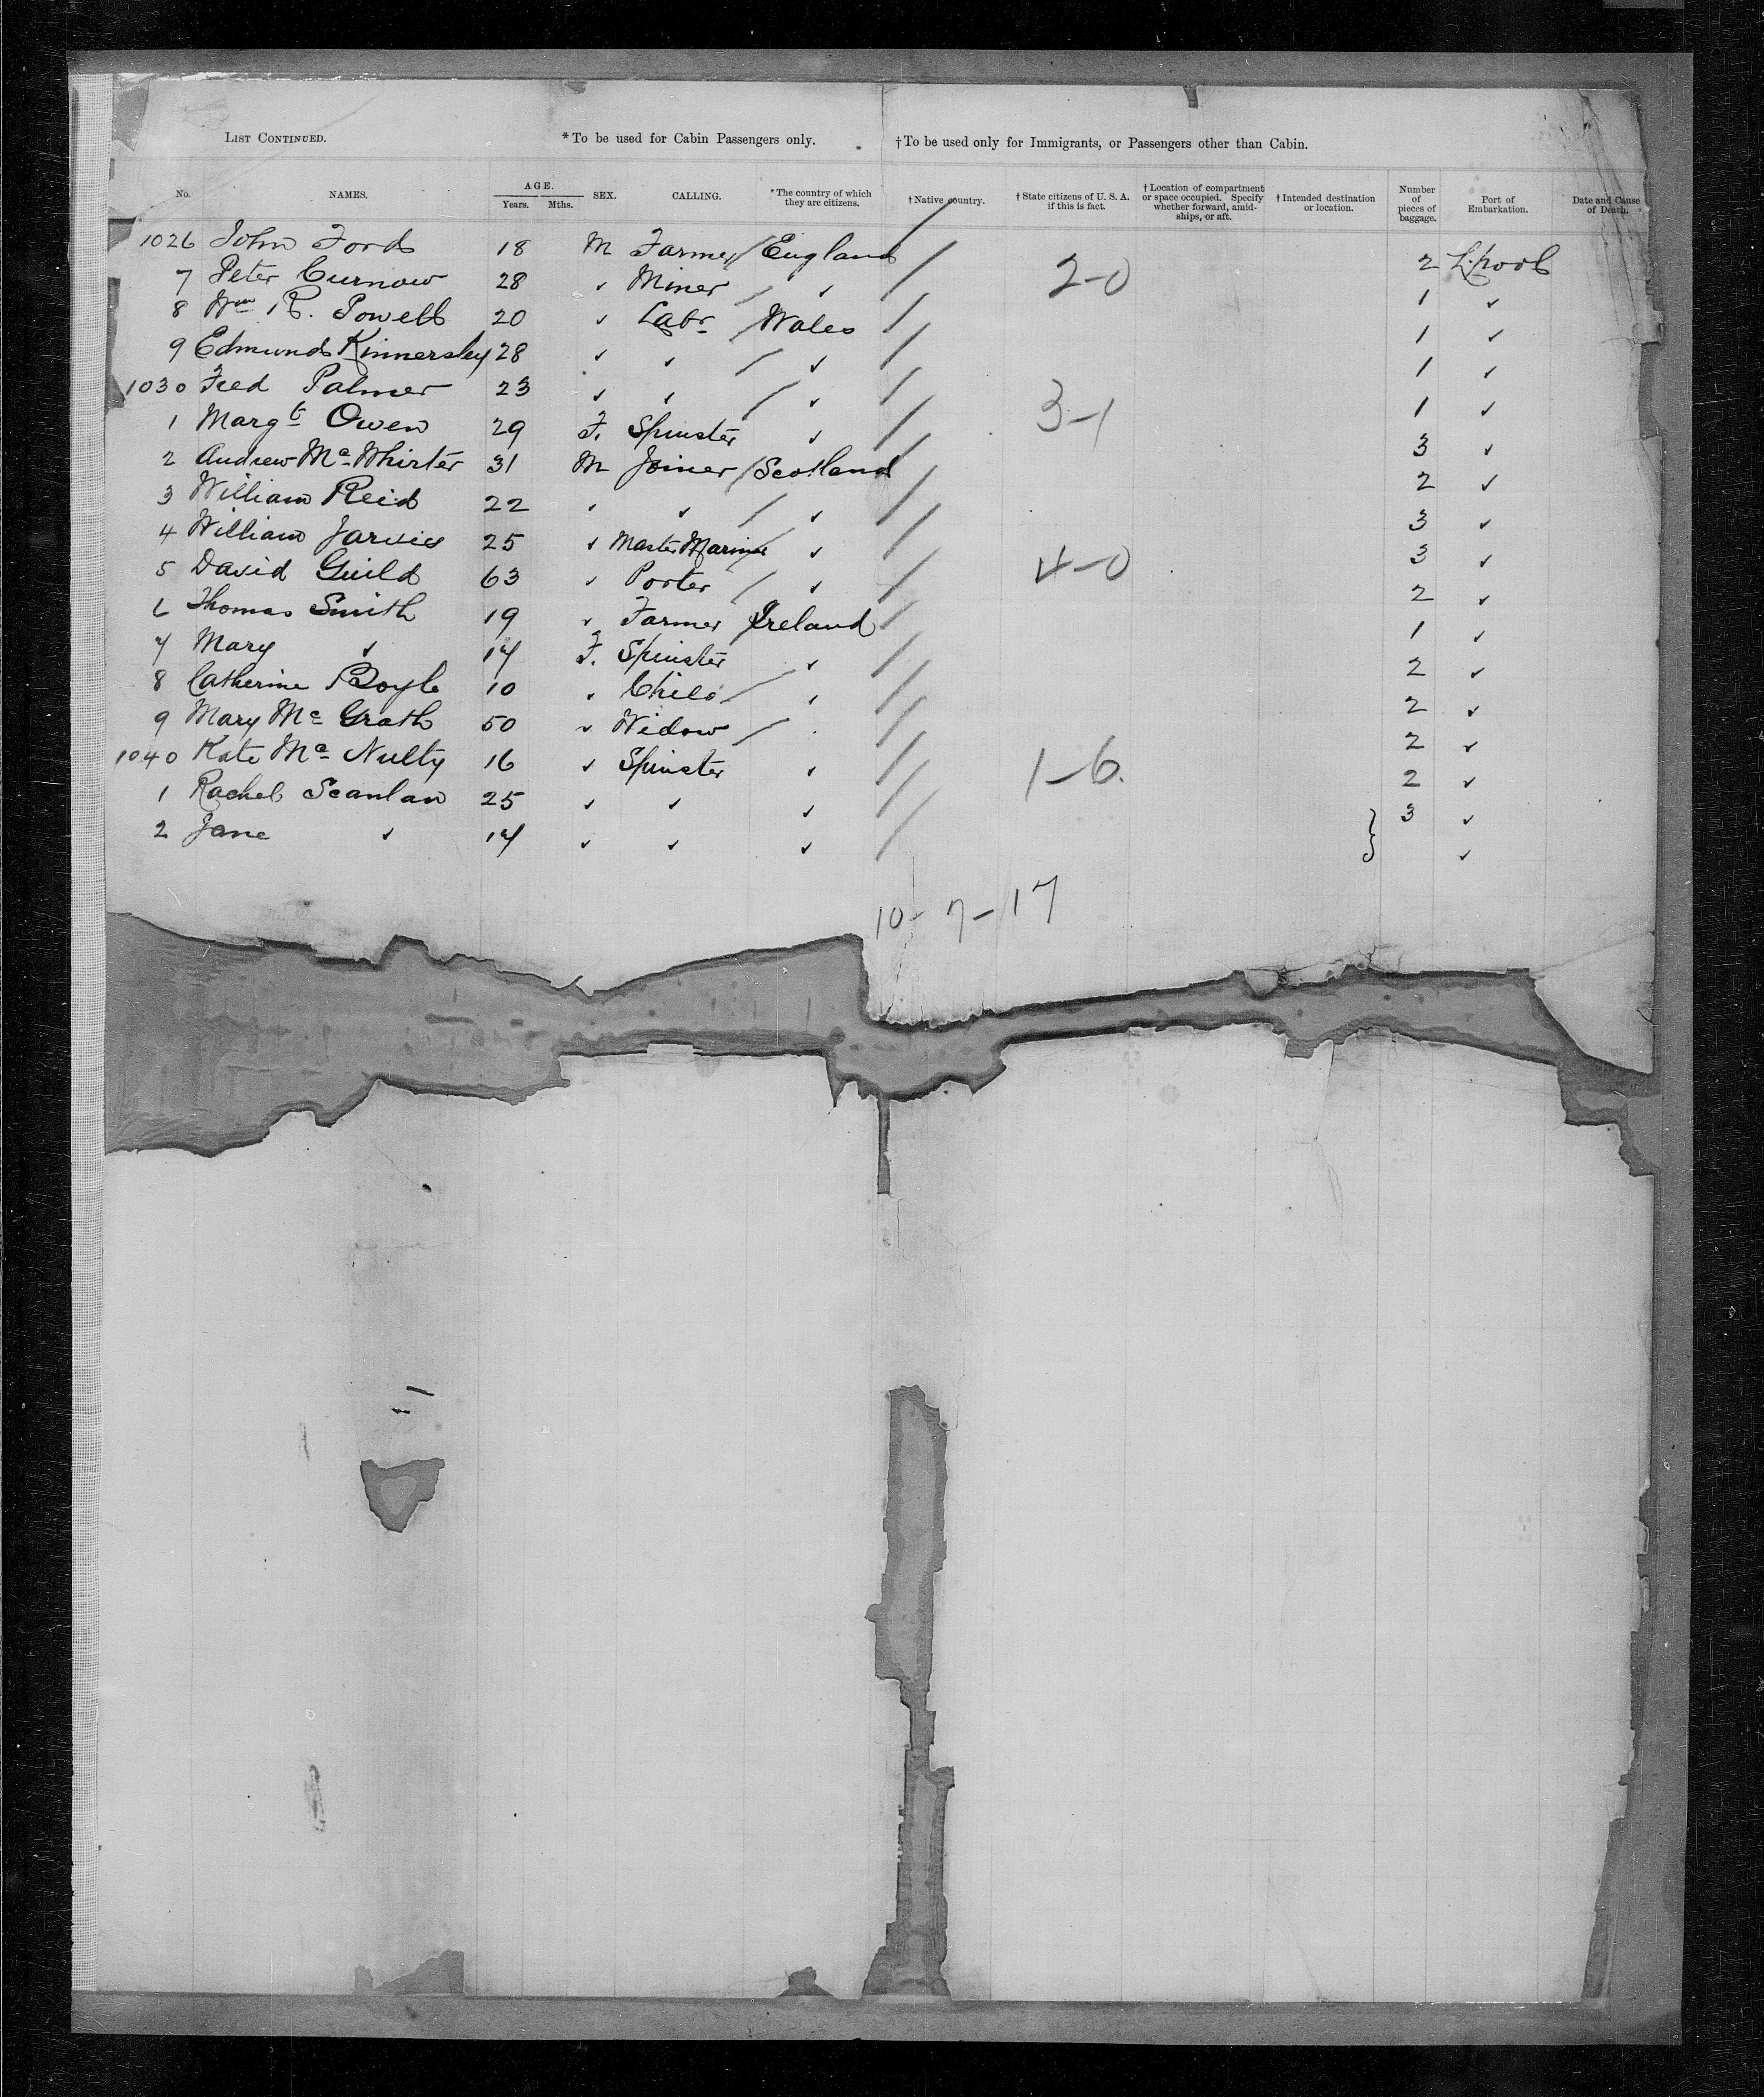 LIST CONTINUED. * To be used for Cabin Passengers only. † To be used only for Immigrants, or Passengers other than Cabin.
No. NAMES. AGE. Years. Mths. SEX. CALLING. * The country of which they are citizens. † Native country. † State citizens of U. S. A. if this is fact. † Location of compartment or space occupied. Specify whether forward, amidships, or aft. † Intended destination or location. Number of pieces of baggage. Port of Embarkation. Date and Cause of Death.
1026 John Ford 18 M Farmer / England / 2 L'pool
7 Peter Curnow 28 ✓ Miner / ✓ / 2-0 1 ✓
8 Wm R. Powell 20 ✓ Labr / Wales / 1 ✓
9 Edmund Kinnersley 28 ✓ ✓ / ✓ / 1 ✓
1030 Fred Palmer 23 ✓ ✓ / ✓ / 1 ✓
1 Margt Owen 29 F. Spinster ✓ / 3-1 3 ✓
2 Andrew Mc Whirter 31 M Joiner / Scotland / 2 ✓
3 William Reid 22 ✓ ✓ / ✓ / 3 ✓
4 William Jarvis 25 ✓ Master Mariner / ✓ / 3 ✓
5 David Guild 63 ✓ Porter / ✓ / 4-0 2 ✓
6 Thomas Smith 19 ✓ Farmer / Ireland / 1 ✓
7 Mary ✓ 17 F. Spinster ✓ / 2 ✓
8 Catherine Boyle 10 ✓ Child / ✓ / 2 ✓
9 Mary Mc Grath 50 ✓ Widow / ✓ / 2 ✓
1040 Kate Mc Nulty 16 ✓ Spinster ✓ / 1-6. 2 ✓
1 Rachel Scanlan 25 ✓ ✓ ✓ / } 3 ✓
2 Jane ✓ 17 ✓ ✓ ✓ / ✓
10-7-17